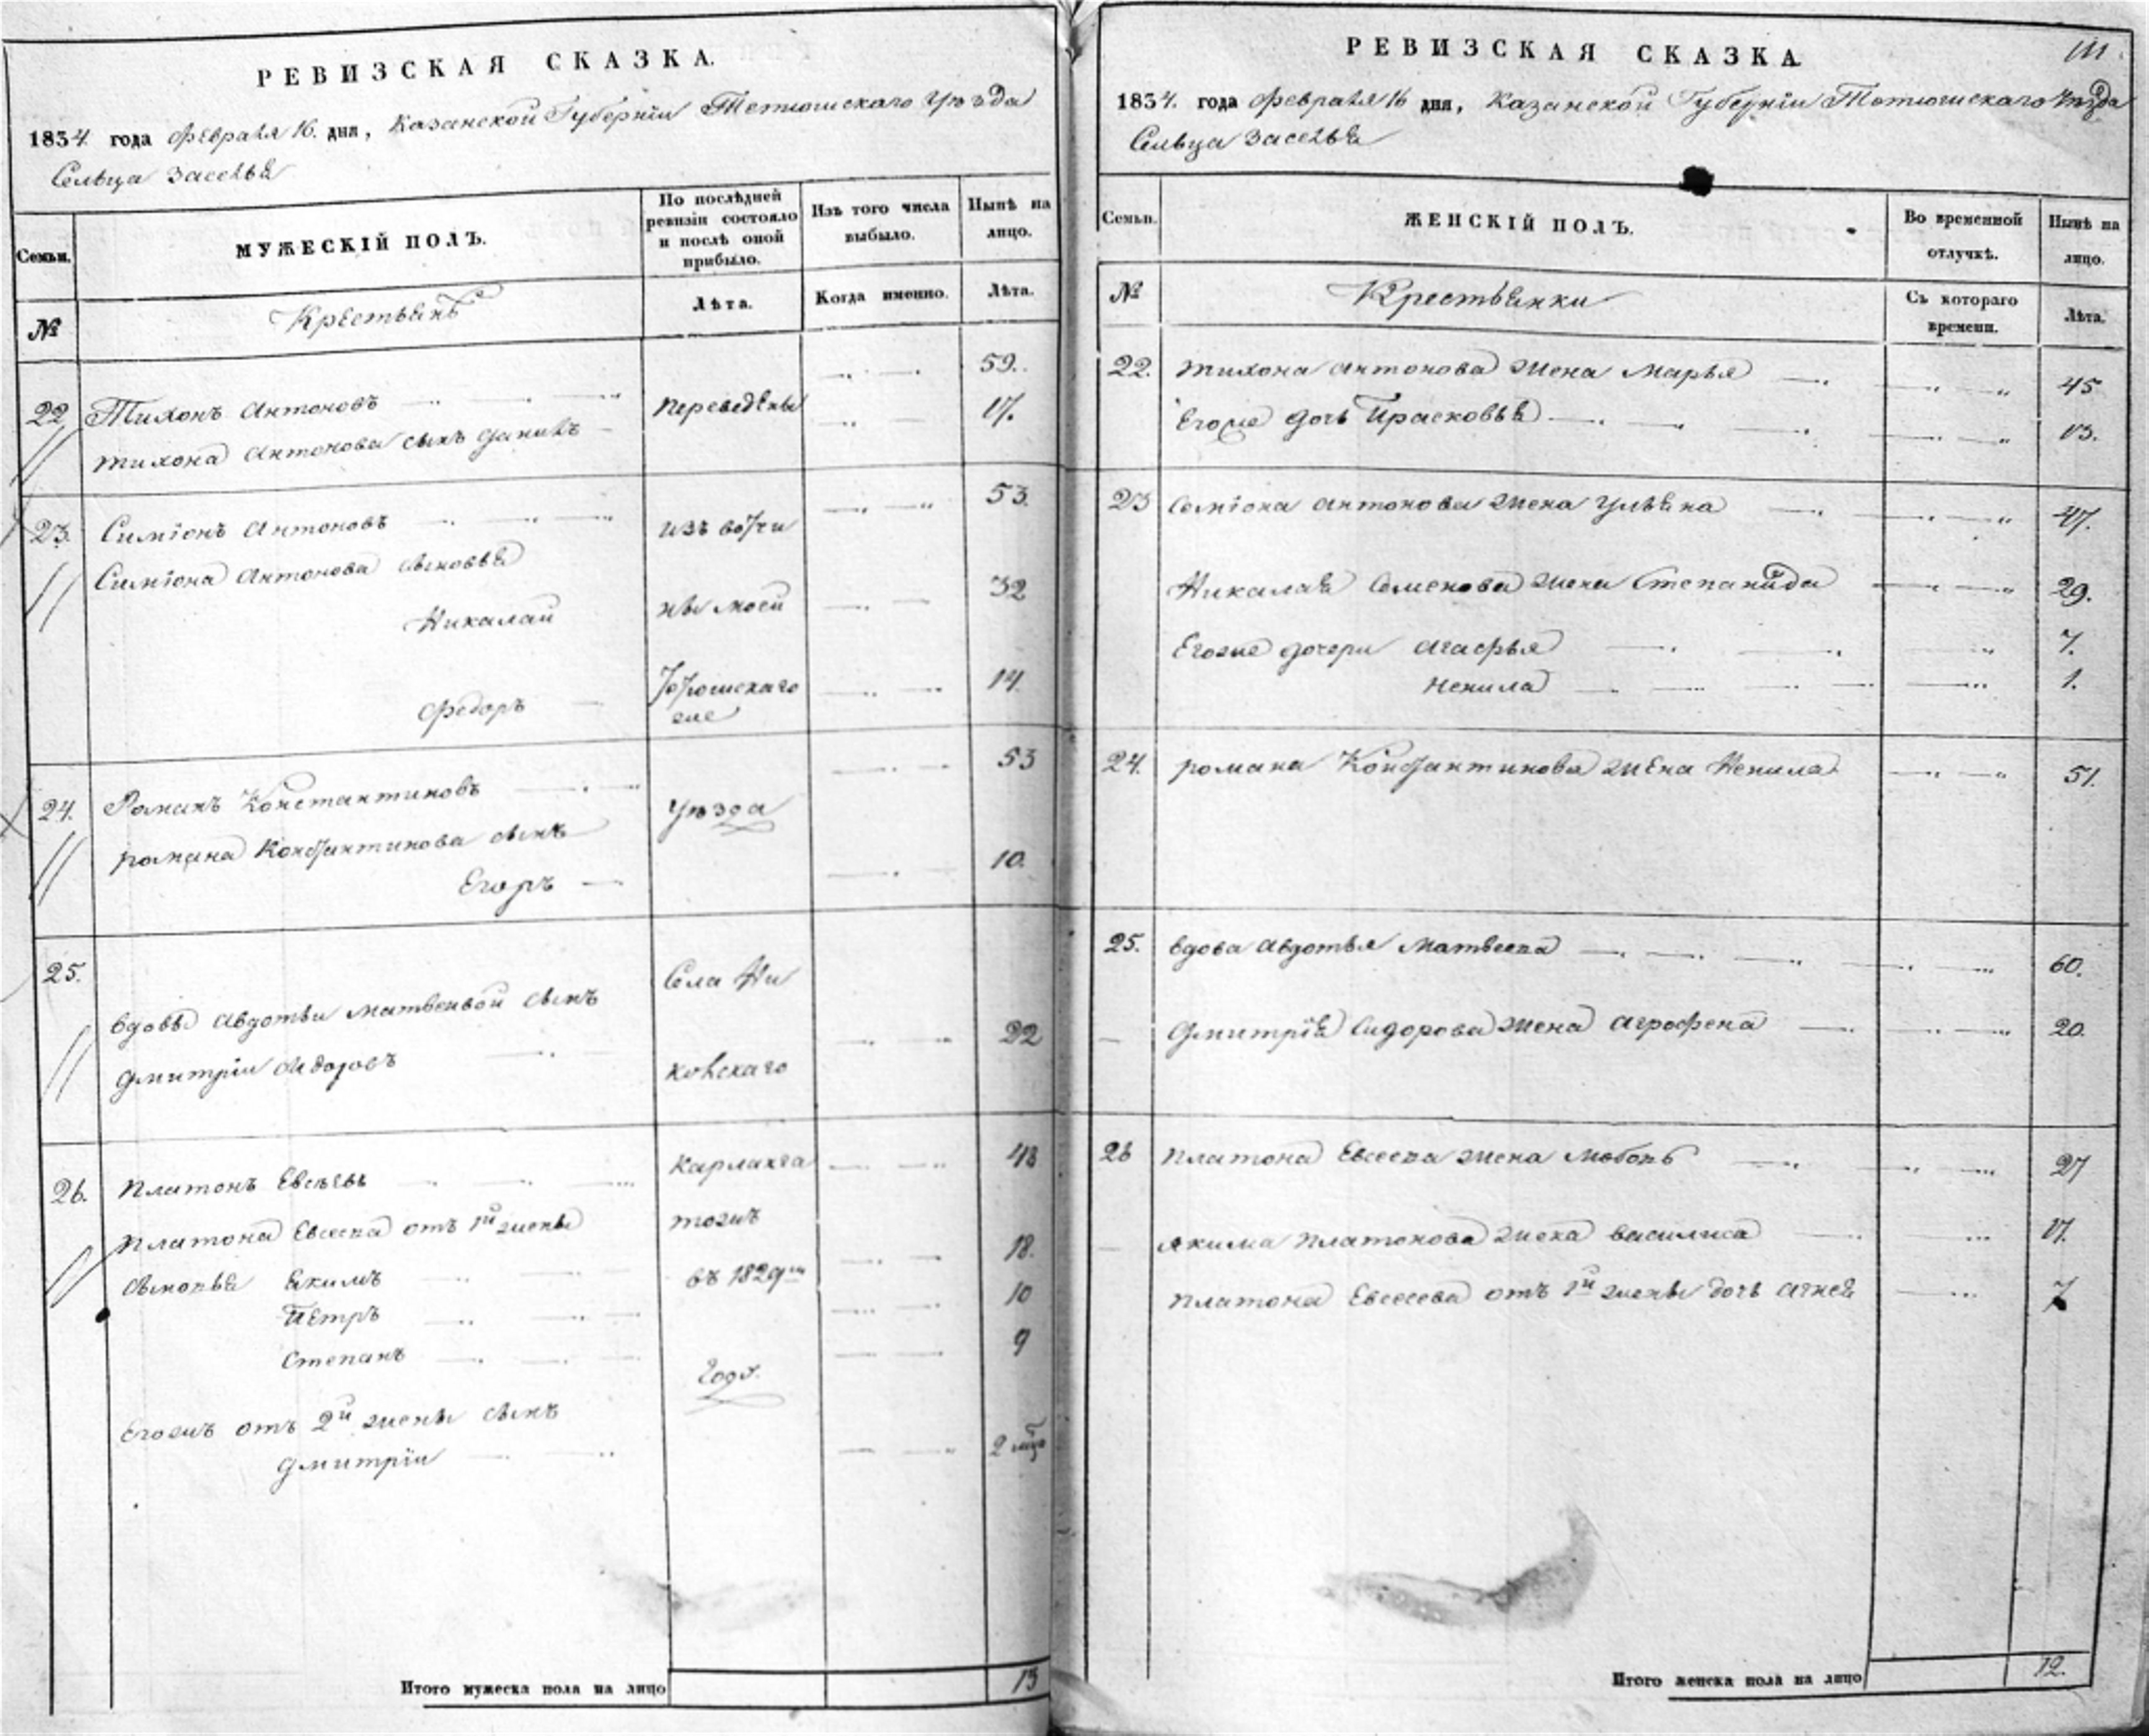 РЕВИЗСКАЯ СКАЗКА.
1834. года февраля 16. дня, Казанской Губернїи Тетюшскаго Уѣзда
Сельца Заселья
Семьи.
МУЖЕСКІЙ ПОЛЪ.
По послѣдней ревизіи состояло и послѣ оной прибыло.
Изъ того числа выбыло.
Нынѣ на лицо.
№
Крестьянъ
Лѣта.
Когда именно.
Лѣта.
22 Тихонъ Антоновъ переведены 59.
Тихона Антонова сынъ Данилъ 17.
23. Симіонъ Антоновъ изъ вотчи 53.
Симіона Антонова сыновья
Никалай ны моей 32
Федоръ Тетюшскаго 14.
же
24. Романъ Константиновъ Уѣзда 53
романа Константинова сынъ
Егоръ 10.
25. Села Ни
вдовы Авдотьи Матвеивой сынъ 22
Дмитріи Сидоровъ ковскаго
26. Платонъ Евсѣевъ Карланга 43
Платона Евсеева отъ 1й жены тожъ
сыновья Якимъ въ 1829м 18.
Петръ 10
Степанъ 9
Году.
Егожъ отъ 2й жены сынъ
Дмитріи 2 мцо
Итого мужеска пола на лицо 13
РЕВИЗСКАЯ СКАЗКА.
111.
1834. года февраля 16 дня, Казанской Губерніи Тетюшскаго Уѣзда
Сельца Заселья
Семьи.
ЖЕНСКІЙ ПОЛЪ.
Во временной отлучкѣ.
Нынѣ на лицо.
№
Крестьянки
Съ котораго времени.
Лѣта.
22. Тихона Антонова жена Марья 45
Егоже дочь Прасковья 13.
23 Семіона Антонова жена Ульяна 47.
Никалая Семенова жена Степанида 29.
Егоже дочери Агафья 7.
Ненила 1.
24. романа Константинова жена Ненила 51.
25. вдова Авдотья Матвеева 60.
Дмитрія Сидорова жена Агрофена 20.
26 Платона Евсеева жена Любовь 27
Якима Платонова жена Василиса 17.
Платона Евсеева отъ 1й жены дочь Агнея 7
Итого женска пола на лицо 12.